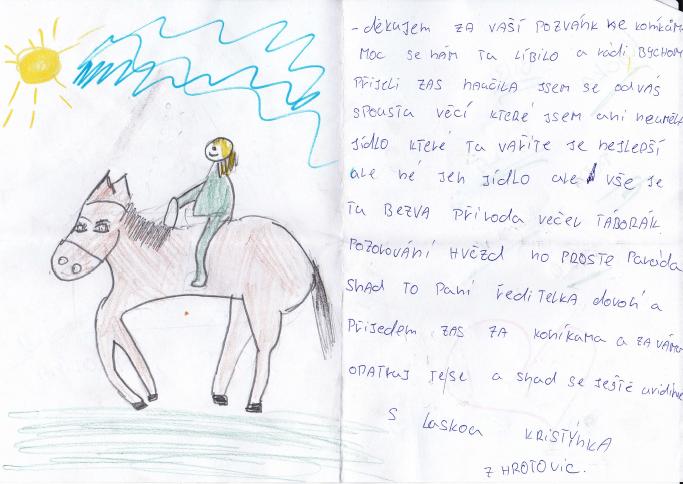 - děkujem za vaší pozvánk ke koníkům
moc se nám tu líbilo a rádi bychom
přijeli zas naučila jsem se od vás
spousta věcí které jsem ani neuměla
jídlo které tu vaříte je nejlepší
ale né jen jídlo ale vše je
tu bezva příroda večer táborák
pozorování hvězd no prostě paráda
snad to paní ředitelka dovolí a
přijedem zas za koníkama a za váma
opatruj te se a snad se ještě uvidíme
s láskou Kristýnka
z Hrotovic.